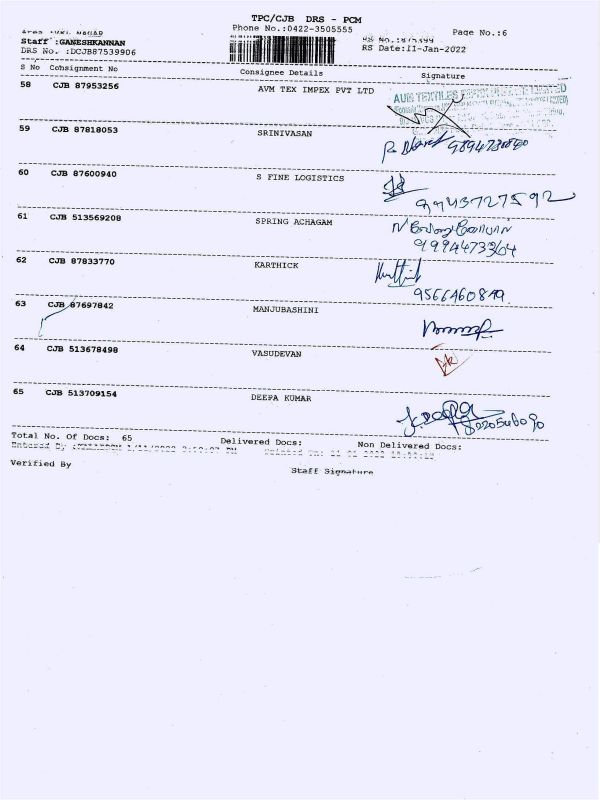 TPC/CJB DRS - PCM
Phone No.:0422-3505555 Page No.:6
Staff :GANESHKANNAN
DRS No. :DCJB87539906 RS Date:11-Jan-2022
S No Consignment No Consignee Details Signature
58 CJB 87953256 AVM TEX IMPEX PVT LTD
AUM TEXTILES
59 CJB 87818053 SRINIVASAN
60 CJB 87600940 S FINE LOGISTICS
9943727592
61 CJB 513569208 SPRING ACHAGAM
9994473364
62 CJB 87833770 KARTHICK
9566460849
63 CJB 87697842 MANJUBASHINI
64 CJB 513678498 VASUDEVAN
65 CJB 513709154 DEEPA KUMAR
Total No. Of Docs: 65 Delivered Docs: Non Delivered Docs:
Verified By Staff Signature